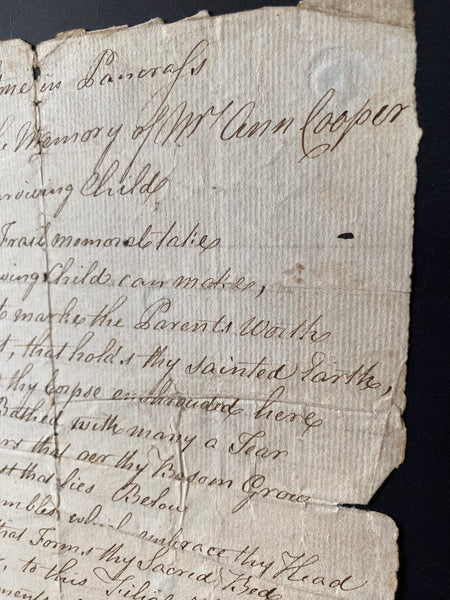 in Pancraſs
Memory of Mrs Ann Cooper
Child
Frail memorel take
Child can make,
to marke the Parents Worth
that holds thy sainted Earth,
thy Corpse enshrouded here
Bathed with many a Tear
that oer thy Bosom Grow
that lies Below
embrace thy Head
that Forms thy Sacred Bed
to this Filial